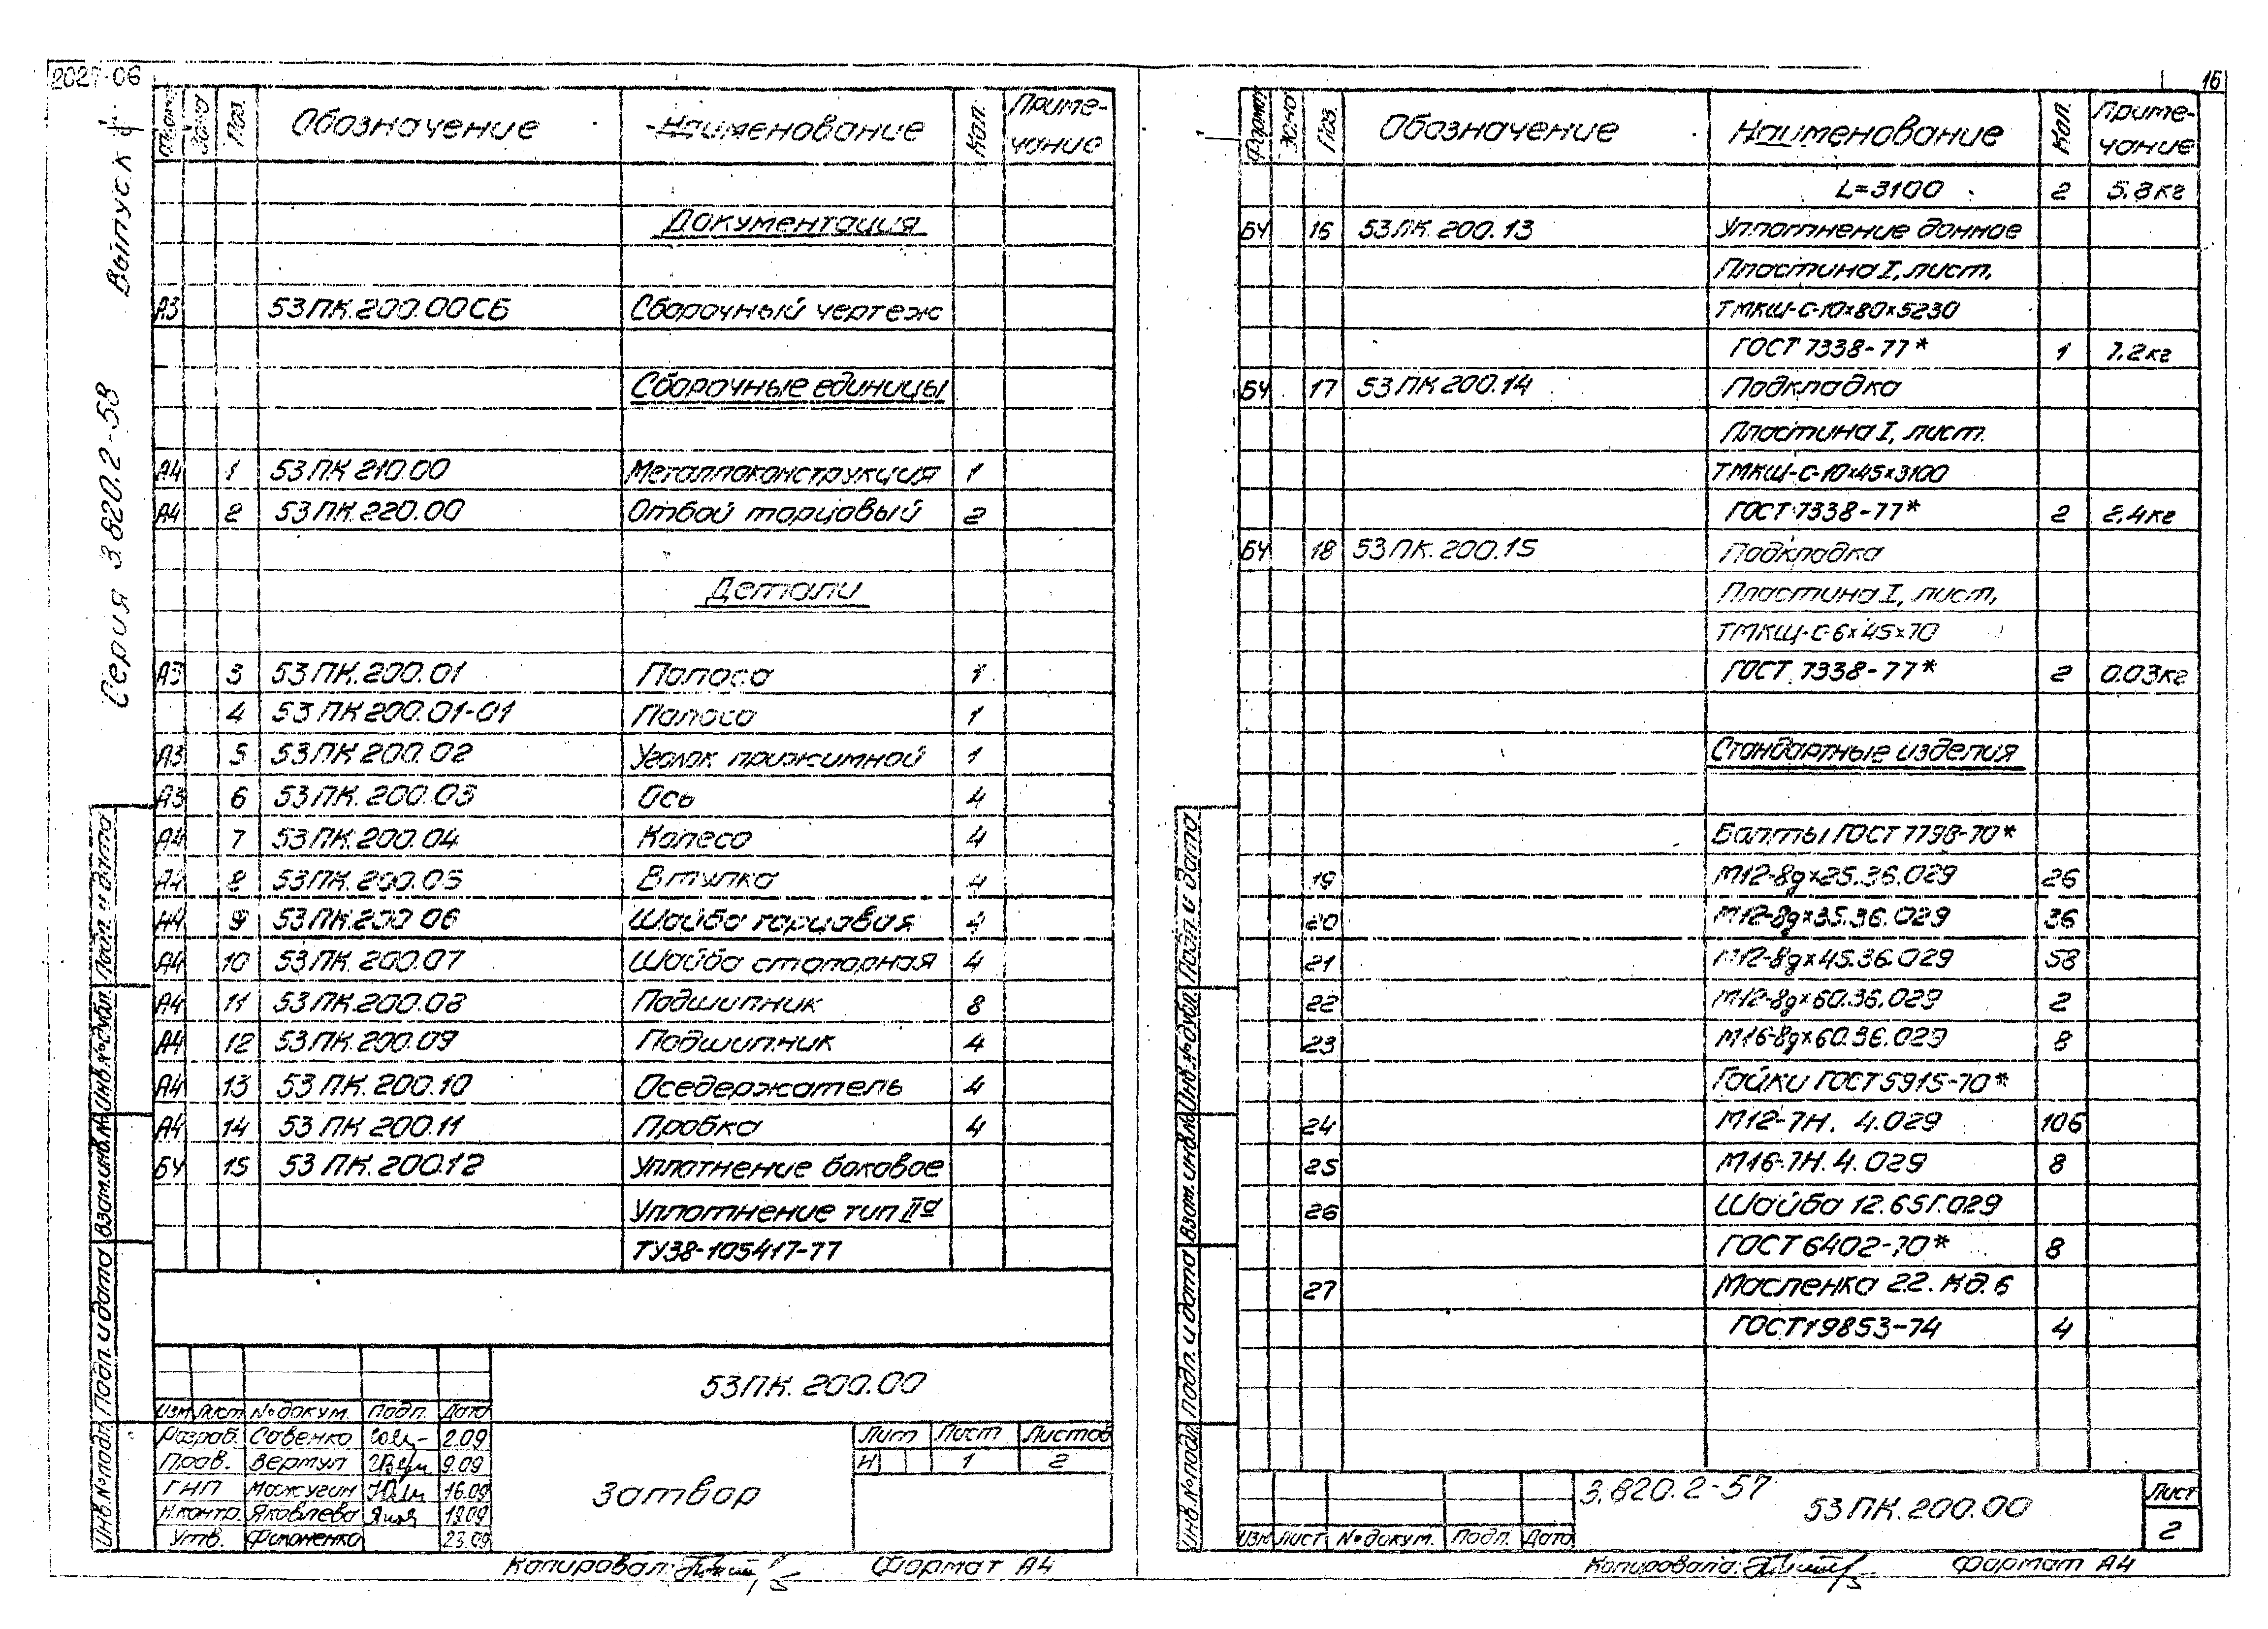 Серия 3.820.2-58 Выпуск
Формат Зона Поз. Обозначение Наименование Кол. Приме-
чание
Документация
А3 53ПК.200.00СБ Сборочный чертеж
Сборочные единицы
А4 1 53ПК 210.00 Металлоконструкция 1
А4 2 53ПК.220.00 Отбой торцовый 2
Детали
А3 3 53ПК.200.01 Полоса 1
4 53ПК200.01-01 Полоса 1
А3 5 53ПК 200.02 Уголок прижимной 1
А3 6 53ПК.200.03 Ось 4
А4 7 53ПК.200.04 Колесо 4
А4 8 53ПК.200.05 Втулка 4
А4 9 53ПК.200 06 Шайба торцовая 4
А4 10 53ПК.200.07 Шайба стопорная 4
А4 11 53ПК.200.08 Подшипник 8
А4 12 53ПК.200.09 Подшипник 4
А4 13 53ПК.200.10 Оседержатель 4
А4 14 53ПК 200.11 Пробка 4
БЧ 15 53ПК.200.12 Уплотнение боковое
Уплотнение тип IIа
ТУ38-105417-77
53ПК.200.00
Изм Лист № докум. Подп. Дата
Разраб. Савенко 2.09
Пров. Вертул 9.09
ГИП Мажугин 16.09
Н.контр. Яковлева 19.09
Утв. Филоненко 23.09
Затвор
Лит Лист Листов
И 1 2
Копировал: Формат А4
Инв.№ подл. Подп. и дата Взам.инв.№ Инв.№ дубл. Подп. и дата
16
Формат Зона Поз. Обозначение Наименование Кол. Приме-
чание
L=3100 2 5.8кг
БЧ 16 53ПК.200.13 Уплотнение донное
Пластина I, лист,
ТМКЩ-С-10х80х5230
ГОСТ 7338-77* 1 7.2кг
БЧ 17 53ПК 200.14 Подкладка
Пластина I, лист.
ТМКЩ-С-10х45х3100
ГОСТ 7338-77* 2 2,4кг
БЧ 18 53ПК.200.15 Подкладка
Пластина I, лист,
ТМКЩ-С-6х45х70
ГОСТ 7338-77* 2 0.03кг
Стандартные изделия
Болты ГОСТ 7798-70*
19 М12-8gх25.36.029 26
20 М12-8gх35.36.029 36
21 М12-8gх45.36.029 58
22 М12-8gх60.36.029 2
23 М16-8gх60.36.029 8
Гайки ГОСТ 5915-70*
24 М12-7Н. 4.029 106
25 М16-7Н.4.029 8
26 Шайба 12.65Г.029
ГОСТ 6402-70* 8
27 Масленка 2.2. Кд.6
ГОСТ 19853-74 4
3.820.2-57
53ПК.200.00
Лист
2
Изм Лист № докум. Подп. Дата
Копировала: Формат А4
Инв.№ подл. Подп. и дата Взам.инв.№ Инв.№ дубл. Подп. и дата